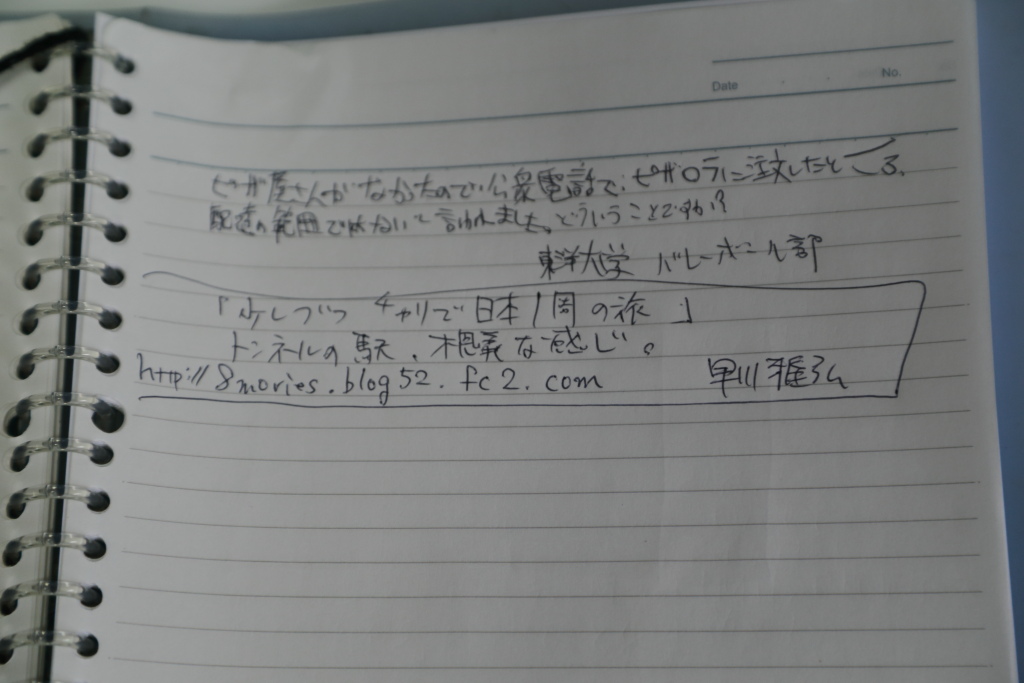 Date No.
ピザ屋さんがなかたので公衆電話で、ピザロラに注文したところ、
配達の範囲ではないと言われました。どういうことですか？
東洋大学 バレーボール部
「少しづつ チャリで日本1周の旅」
トンネルの駅、不思議な感じ。
http://8movies.blog52.fc2.com 早川雅弘